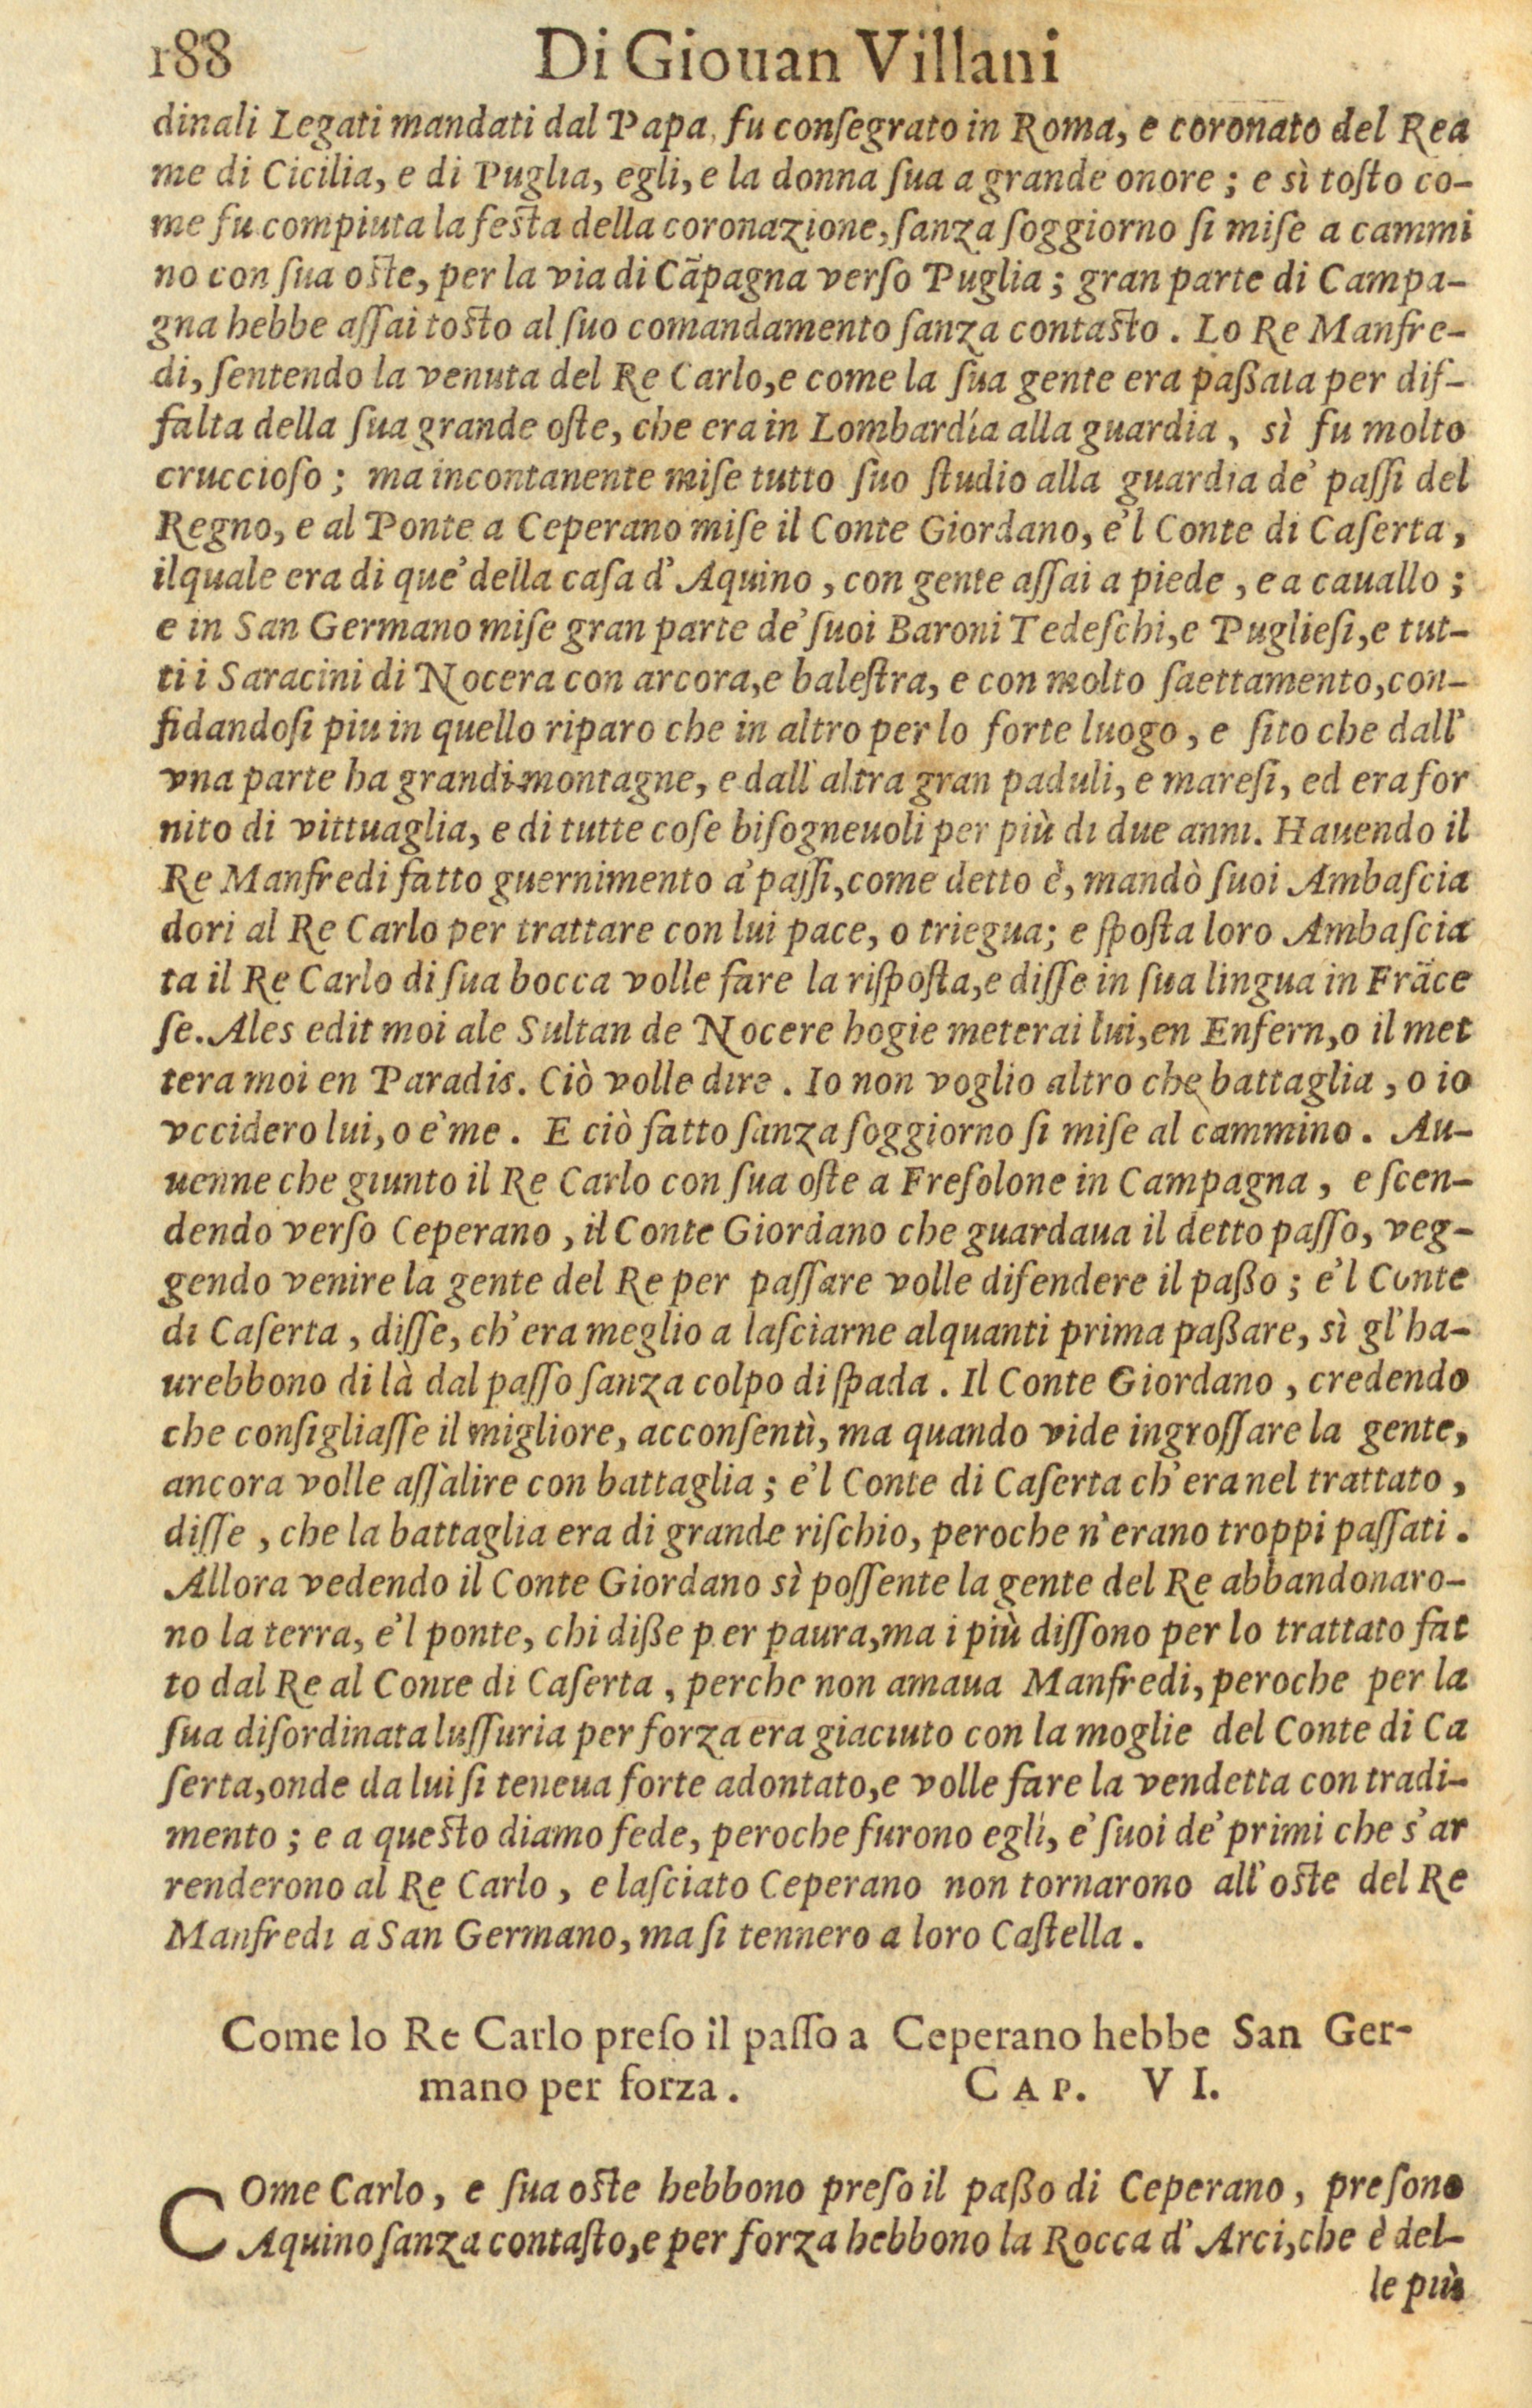 188 Di Giouan Villani
dinali Legati mandati dal Papa, fu conſegrato in Roma, e coronato del Rea
me di Cicilia, e di Puglia, egli, e la donna ſua a grande onore; e sì toſto co-
me fu compiuta la feſta della coronazione, ſanza ſoggiorno ſi miſe a cammi
no con ſua oſte, per la via di Cãpagna verſo Puglia; gran parte di Campa-
gna hebbe aſſai toſto al ſuo comandamento ſanza contaſto. Lo Re Manfre-
di, ſentendo la venuta del Re Carlo, e come la ſua gente era paßata per dif-
falta della ſua grande oſte, che era in Lombardía alla guardia, sì fu molto
cruccioſo; ma incontanente miſe tutto ſùo ſtudio alla guardia de' paſſi del
Regno, e al Ponte a Ceperano miſe il Conte Giordano, e'l Conte di Caſerta,
ilquale era di que' della caſa d'Aquino, con gente aſſai a piede, e a cauallo;
e in San Germano miſe gran parte de' ſuoi Baroni Tedeſchi, e Puglieſi, e tut-
ti i Saracini di Nocera con arcora, e baleſtra, e con molto ſaettamento, con-
fidandoſi piu in quello riparo che in altro per lo forte luogo, e ſito che dall'
vna parte ha grandi montagne, e dall'altra gran paduli, e mareſi, ed era for
nito di vittuaglia, e di tutte coſe biſogneuoli per più di due anni. Hauendo il
Re Manfredi fatto guernimento a' paſſi, come detto è, mandò ſuoi Ambaſcia
dori al Re Carlo per trattare con lui pace, o triegua; e ſpoſta loro Ambaſcia
ta il Re Carlo di ſua bocca volle fare la riſpoſta, e diſſe in ſua lingua in Frãce
ſe. Ales edit moi ale Sultan de Nocere hogie meterai lui, en Enfern, o il met
tera moi en Paradis. Ciò volle dire. Io non voglio altro che battaglia, o io
vccidero lui, o e' me. E ciò fatto ſanza ſoggiorno ſi miſe al cammino. Au-
uenne che giunto il Re Carlo con ſua oſte a Freſolone in Campagna, e ſcen-
dendo verſo Ceperano, il Conte Giordano che guardaua il detto paſſo, veg-
gendo venire la gente del Re per paſſare volle difendere il paßo; e'l Conte
di Caſerta, diſſe, ch'era meglio a laſciarne alquanti prima paßare, sì gl'ha-
urebbono di là dal paſſo ſanza colpo di ſpada. Il Conte Giordano, credendo
che conſigliaſſe il migliore, acconſentì, ma quando vide ingroſſare la gente,
ancora volle aſſalire con battaglia; e'l Conte di Caſerta ch'era nel trattato,
diſſe, che la battaglia era di grande riſchio, peroche n'erano troppi paſſati.
Allora vedendo il Conte Giordano sì poſſente la gente del Re abbandonaro-
no la terra, e'l ponte, chi diße per paura, ma i più diſſono per lo trattato fat
to dal Re al Conte di Caſerta, perche non amaua Manfredi, peroche per la
ſua diſordinata luſſuria per forza era giaciuto con la moglie del Conte di Ca
ſerta, onde da lui ſi teneua forte adontato, e volle fare la vendetta con tradi-
mento; e a queſto diamo fede, peroche furono egli, e' ſuoi de' primi che s'ar
renderono al Re Carlo, e laſciato Ceperano non tornarono all'oſte del Re
Manfredi a San Germano, ma ſi tennero a loro Caſtella.
Come lo Re Carlo preſo il paſſo a Ceperano hebbe San Ger-
mano per forza. CAP. VI.
COme Carlo, e ſua oſte hebbono preſo il paßo di Ceperano, preſono
Aquino ſanza contaſto, e per forza hebbono la Rocca d'Arci, che è del-
le più